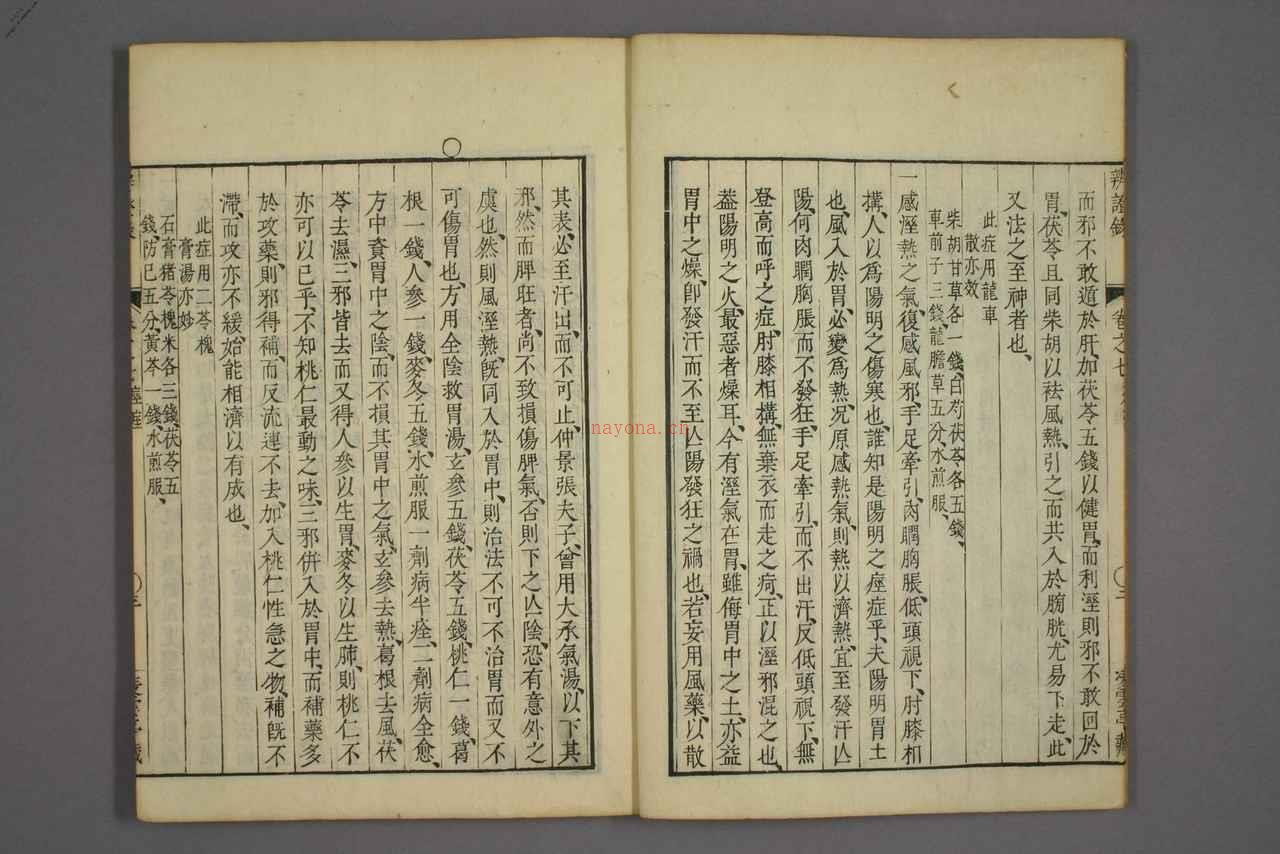 辨證錄
卷之七
而邪不敢遁於肝、加茯苓五錢以健胃、而利溼則邪不敢回於
胃、茯苓且同柴胡以袪風熱、引之而共入於膀胱、尤易下走、此
又法之至神者也、
此症用龍車
散亦效
柴胡甘草各一錢、白芍茯苓各五錢、
車前子三錢、龍膽草五分、水煎服、
一感溼熱之氣、復感風邪、手足牽引、肉瞤胸脹、低頭視下、肘膝相
搆、人以爲陽明之傷寒也、誰知是陽明之痙症乎、夫陽明胃土
也、風入於胃、必變爲熱、况原感熱氣、則熱以濟熱、宜至發汗亾
陽、何肉瞤胸脹而不發狂、手足牽引、而不出汗、反低頭視下、無
登高而呼之症、肘膝相搆、無棄衣而走之疴、正以溼邪混之也、
葢陽明之火、最惡者燥耳、今有溼氣在胃、雖侮胃中之土、亦益
胃中之燥、卽發汗而不至亾陽發狂之禍也、若妄用風藥、以散
其表、必至汗出、而不可止、仲景張夫子、曾用大承氣湯、以下其
邪、然而脾旺者、尚不致損傷脾氣、否則下之亾陰、恐有意外之
虞也、然則風溼熱、旣同入於胃中、則治法不可不治胃、而又不
可傷胃也、方用全陰救胃湯、玄參五錢、茯苓五錢、桃仁一錢、葛
根一錢、人參一錢、麥冬五錢、水煎服一劑病半痊、二劑病全愈、
方中資胃中之陰、而不損其胃中之氣、玄參去熱、葛根去風、茯
苓去濕、三邪皆去而又得人參以生胃、麥冬以生肺、則桃仁不
亦可以已乎、不知桃仁最動之味、三邪併入於胃中、而補藥多
於攻藥、則邪得補、而反流連不去、加入桃仁性急之物、補旣不
滯、而攻亦不緩、始能相濟以有成也、
此症用二苓槐
膏湯亦妙
石膏猪苓槐米各三錢、茯苓五
錢、防已五分、黃芩一錢、水煎服、
nayona.cn